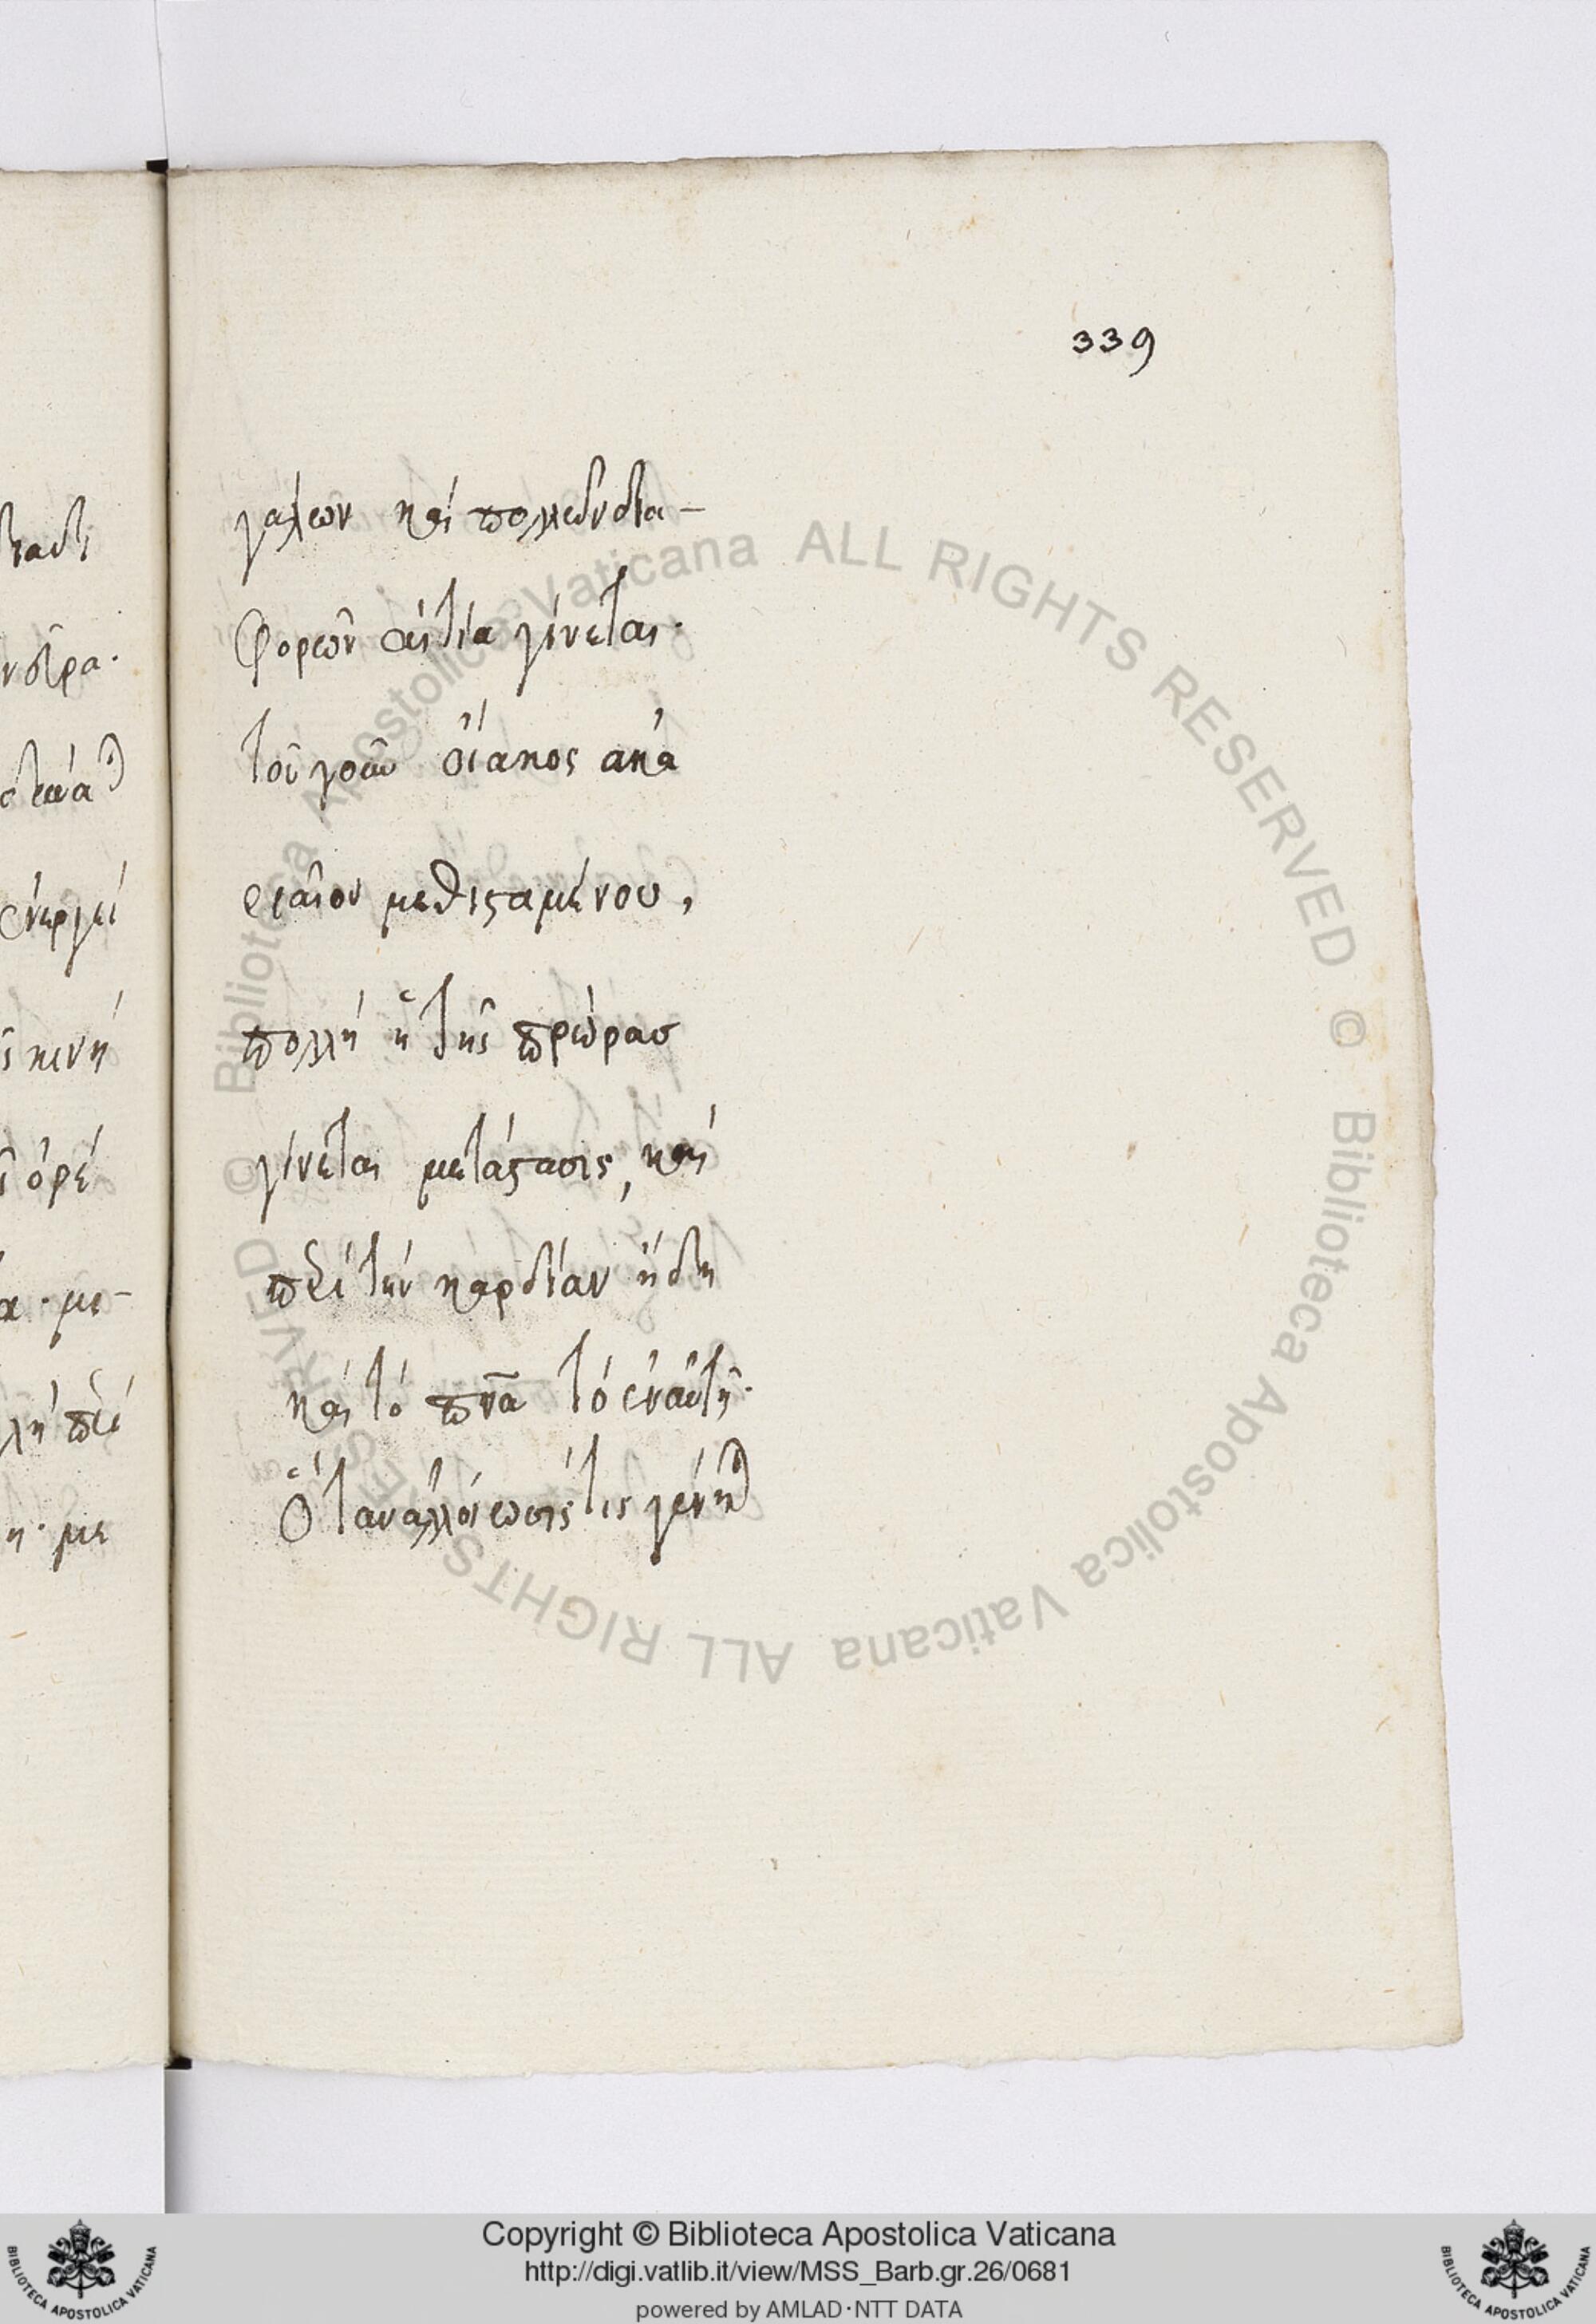 339
γάλων καὶ πολλῶν δια-
φορῶν αἰτία γίνεται·
τοῦ γοῦν οἴακος ἀκα
ριαῖον μεθισταμένου,
πολλὴ ἡ τῆς πρώρας
γίνεται μετάστασις, καὶ
περὶ τὴν καρδίαν ἤδη
καὶ τὸ πνα τὸ ἐν αὐτῇ·
Ὅταν ἀλλοίωσίς τις γένηται
Biblioteca Apostolica Vaticana ALL RIGHTS RESERVED ©
Biblioteca Apostolica Vaticana ALL RIGHTS RESERVED ©
Copyright © Biblioteca Apostolica Vaticana
http://digi.vatlib.it/view/MSS_Barb.gr.26/0681
powered by AMLAD·NTT DATA
BIBLIOTECA APOSTOLICA VATICANA
BIBLIOTECA APOSTOLICA VATICANA